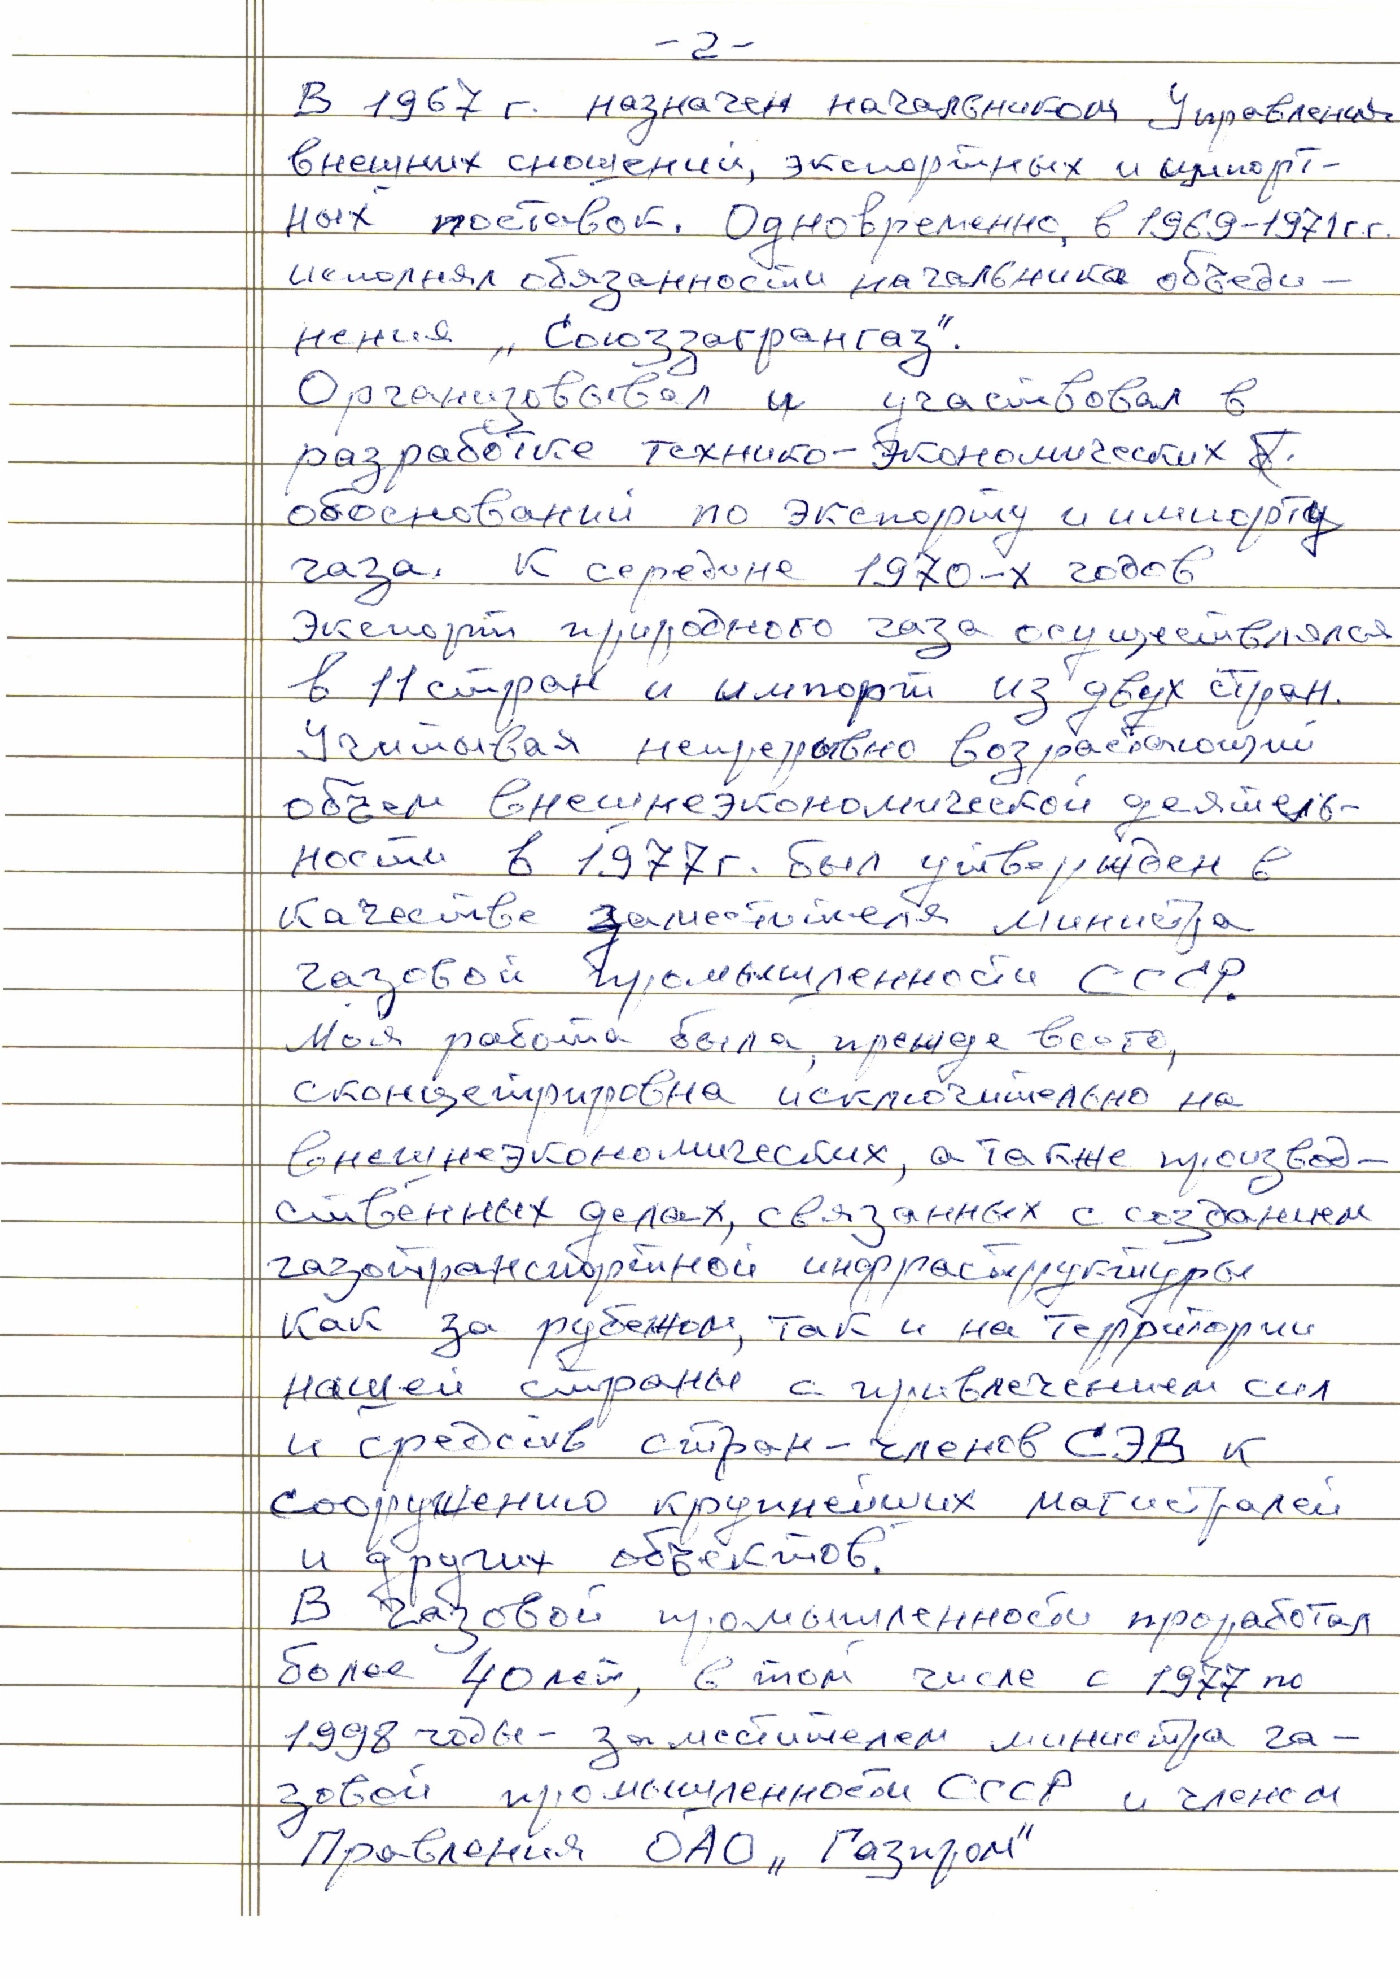 - 2 -
В 1967 г. назначен начальником Управления
внешних сношений, экспортных и импорт-
ных поставок. Одновременно, в 1969-1971 г.г.
исполнял обязанности начальника объеди-
нения „Союззагрангаз".
Организовывал и участвовал в
разработке технико-экономических
обоснований по экспорту и импорту
газа. К середине 1970-х годов
экспорт природного газа осуществлялся
в 11 стран и импорт из двух стран.
Учитывая непрерывно возрастающий
объем внешнеэкономической деятель-
ности в 1977 г. был утвержден в
качестве заместителя министра
газовой промышленности СССР.
Моя работа была, прежде всего,
сконцетрировна исключительно на
внешнеэкономических, а также производ-
ственных делах, связанных с созданием
газотранспортной инфраструктуры
как за рубежом, так и на территории
нашей страны с привлечением сил
и средств стран-членов СЭВ к
сооружению крупнейших магистралей
и других объектов.
В газовой промышленности проработал
более 40 лет, в том числе с 1977 по
1998 годы - заместителем министра га-
зовой промышленности СССР и членом
Правления ОАО „Газпром"